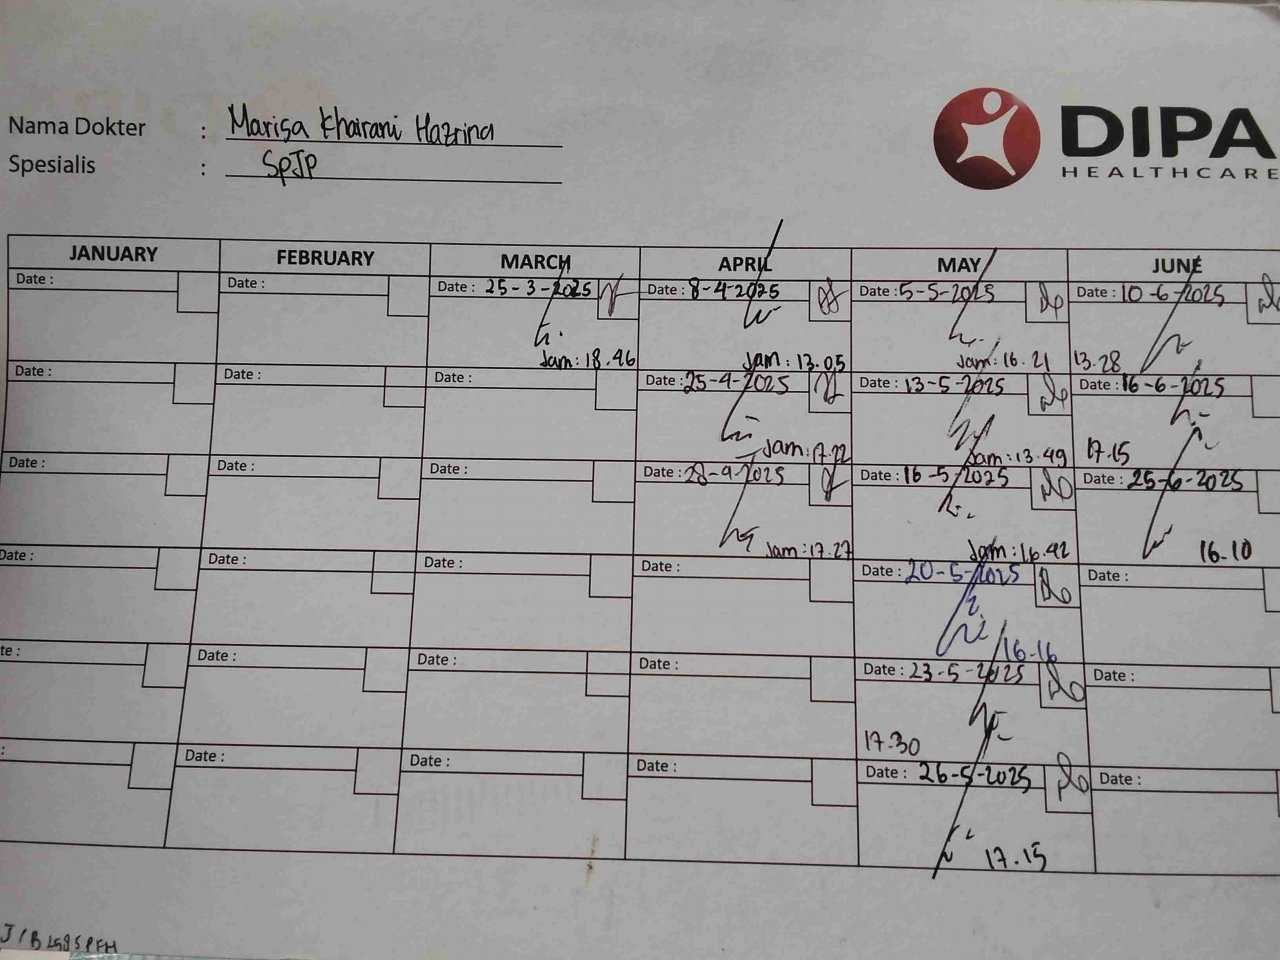 Nama Dokter : Marisa Khairani Hazrina
Spesialis : SpJP
DIPA
HEALTHCARE
JANUARY FEBRUARY MARCH APRIL MAY JUNE
Date : Date : Date : 25-3-2025 Date : 8-4-2025 Date : 5-5-2025 Date : 10-6-2025
Jam : 18.46 Jam : 13.05 Jam : 16.21 13.28
Date : Date : Date : Date : 25-4-2025 Date : 13-5-2025 Date : 16-6-2025
Jam : 17.22 Jam : 13.49 17.15
Date : Date : Date : Date : 28-4-2025 Date : 16-5-2025 Date : 25-6-2025
Jam : 17.27 Jam : 16.42 16.10
Date : Date : Date : Date : Date : 20-5-2025 Date :
16-16
te : Date : Date : Date : Date : 23-5-2025 Date :
17.30
: Date : Date : Date : Date : 26-5-2025 Date :
17.15